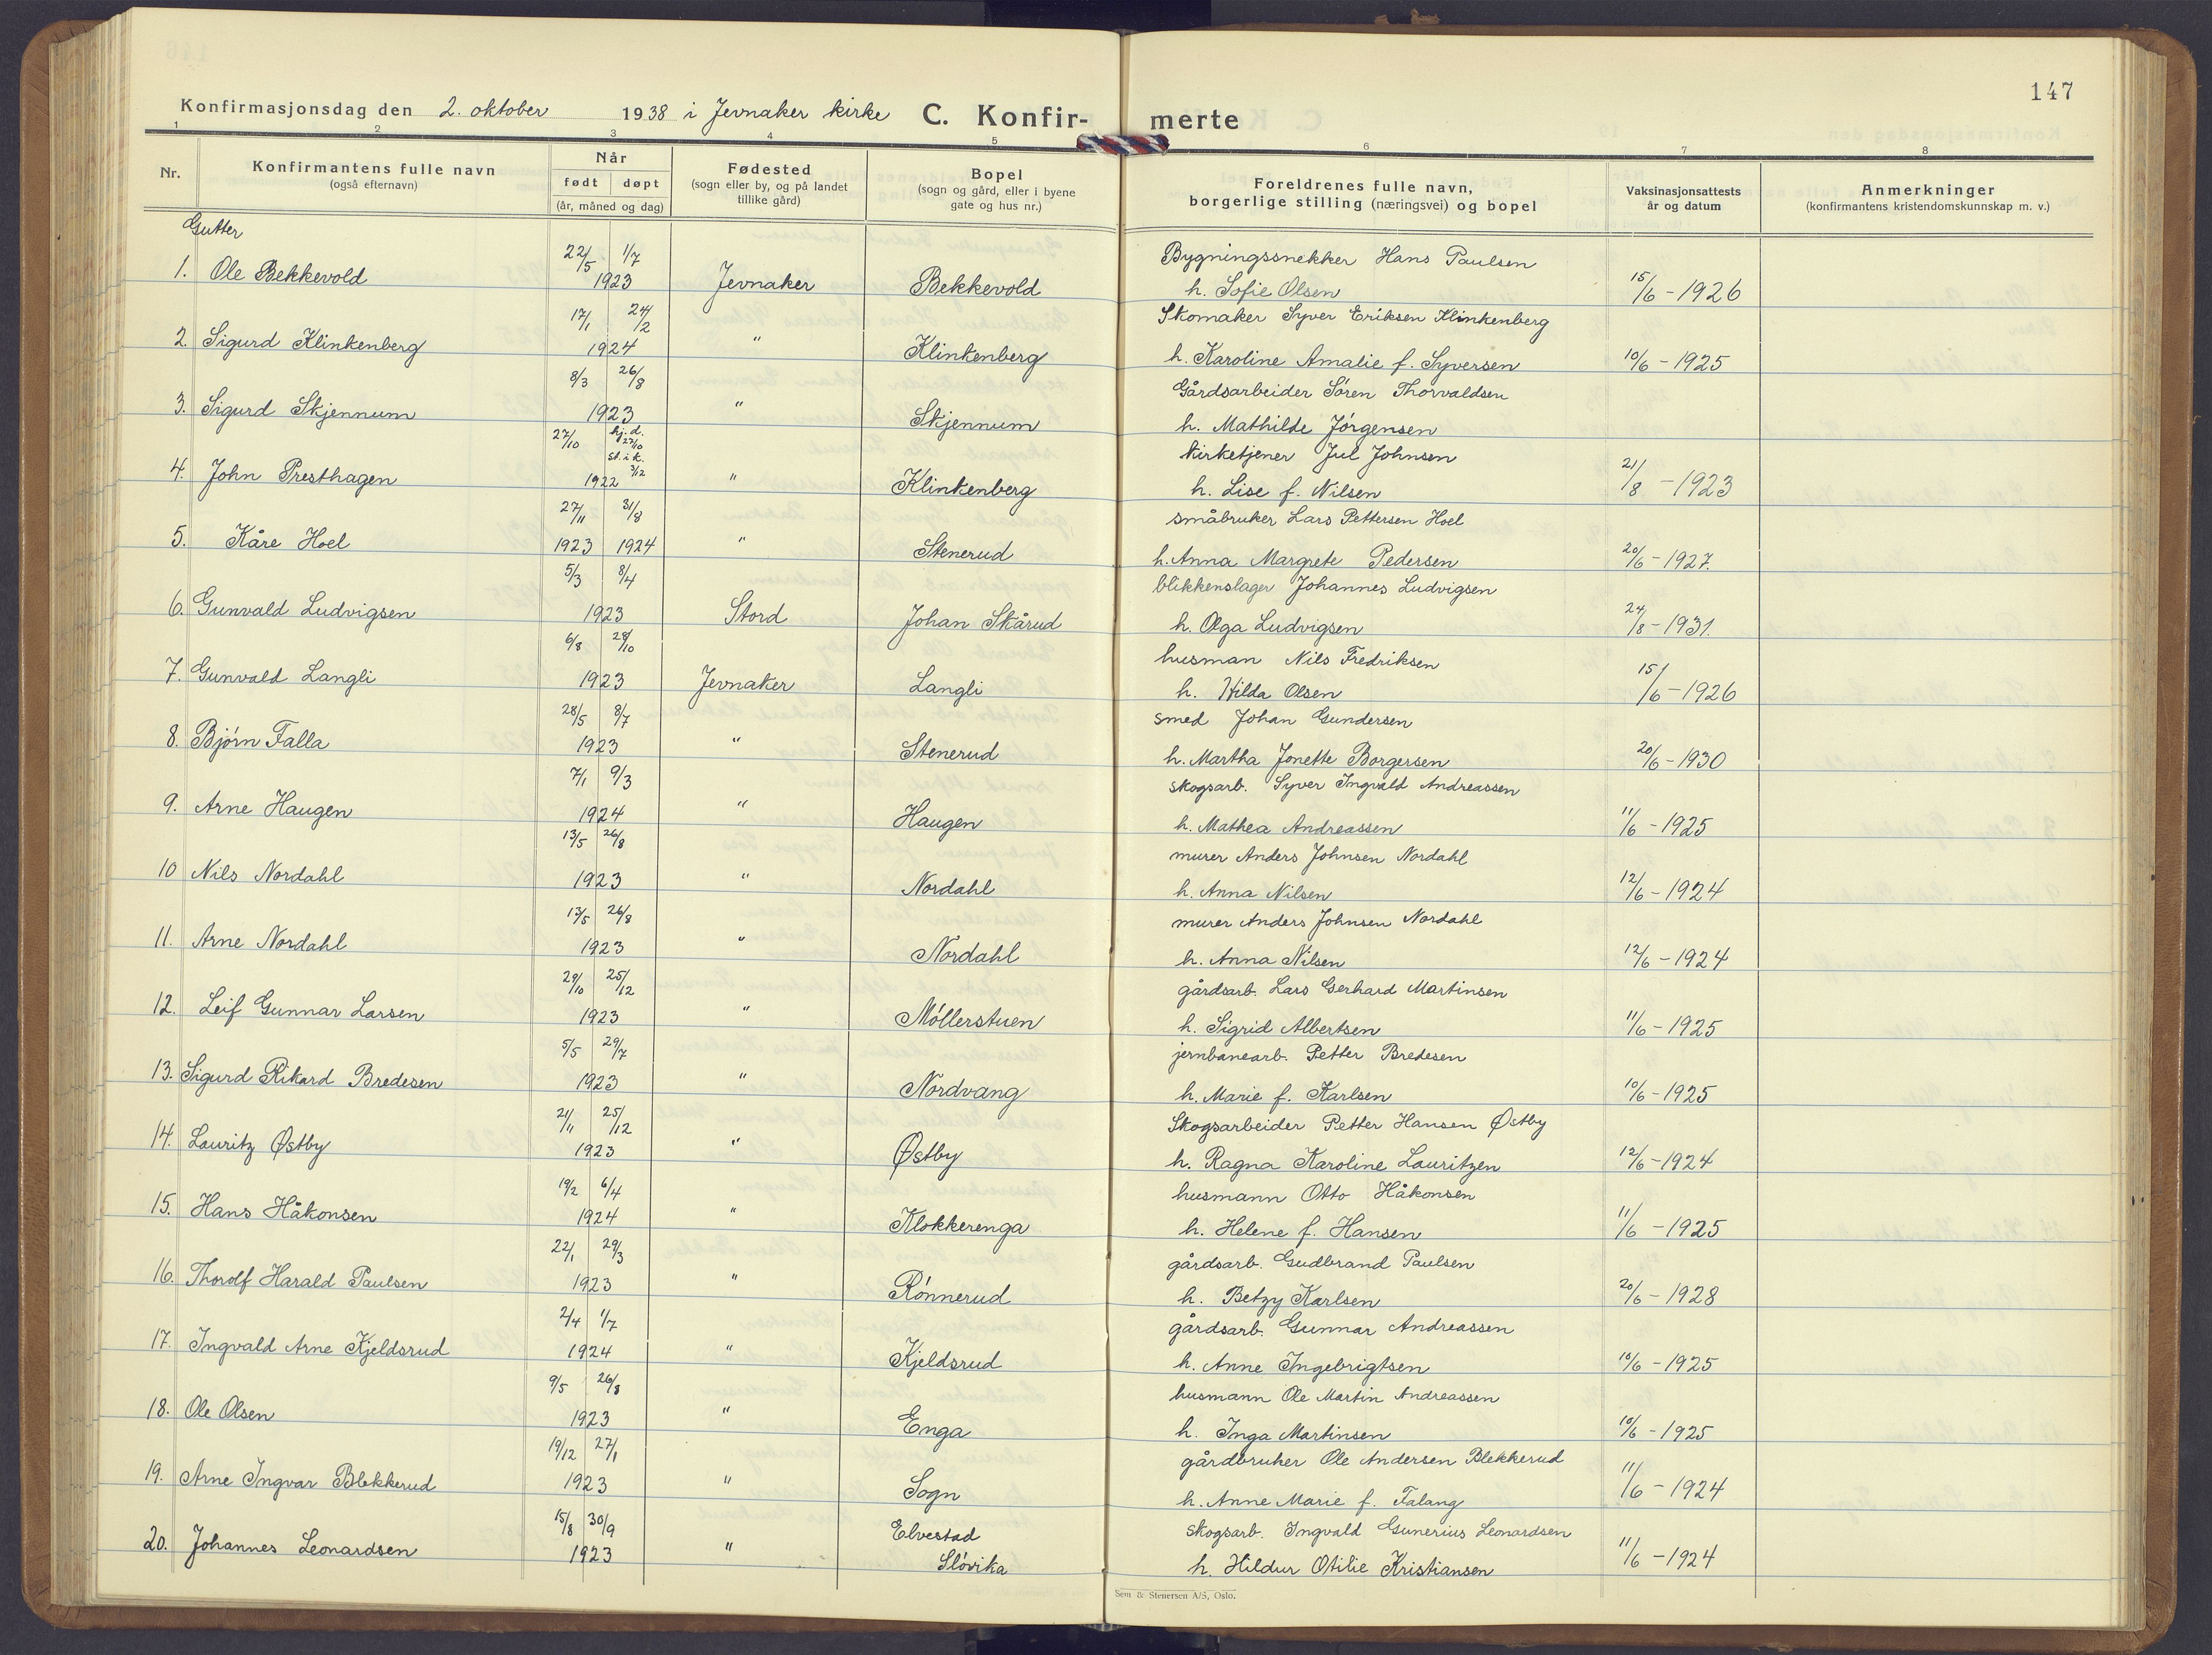 147
Konfirmasjonsdag den 2. oktober 1938 i Jevnaker kirke C. Konfir- merte
1 2 3 4 5 6 7 8
Nr.
Konfirmantens fulle navn
(også efternavn)
Når
født døpt
(år, måned og dag)
Fødested
(sogn eller by, og på landet
tillike gård)
Bopel
(sogn og gård, eller i byene
gate og hus nr.)
Foreldrenes fulle navn,
borgerlige stilling (næringsvei) og bopel
Vaksinasjonsattests
år og datum
Anmerkninger
(konfirmantens kristendomskunnskap m. v.)
Gutter
22/5 1/7 Bygningssnekker Hans Paulsen
1. Ole Bekkevold 1923 Jevnaker Bekkevold h. Sofie Olsen 15/6 - 1926
17/1 24/2 Skomaker Syver Eriksen Klinkenberg
2. Sigurd Klinkenberg 1924 " Klinkenberg h. Karoline Amalie f. Syversen 10/6 - 1925
8/3 26/8 Gårdsarbeider Søren Thorvaldsen
3. Sigurd Skjennum 1923 " Skjennum h. Mathilde Jørgensen
27/10 hj. d. 27/10 st. i k. 3/12 Kirketjener Jul Johnsen
4. John Presthagen 1922 " Klinkenberg h. Lise f. Nilsen 21/8 - 1923
27/11 31/8 småbruker Lars Pettersen Hoel
5. Kåre Hoel 1923 1924 " Stenerud h. Anna Margrete Pedersen 20/6 - 1927.
5/3 8/4 blikkenslager Johannes Ludvigsen
6. Gunvald Ludvigsen 1923 Stord Johan Skårud h. Olga Ludvigsen 24/8 - 1931.
6/8 28/10 husman Nils Fredriksen
7. Gunvald Langli 1923 Jevnaker Langli h. Hilda Olsen 15/6 - 1926
28/5 8/7 smed Johan Gundersen
8. Bjørn Falla 1923 " Stenerud h. Martha Jonette Borgersen 20/6 - 1930
7/1 9/3 skogsarb. Syver Ingvald Andreassen
9. Arne Haugen 1924 " Haugen h. Mathea Andreassen 11/6 - 1925
13/5 26/8 murer Anders Johnsen Nordahl
10 Nils Nordahl 1923 " Nordahl h. Anna Nilsen 12/6 - 1924
13/5 26/8 murer Anders Johnsen Nordahl
11. Arne Nordahl 1923 " Nordahl h. Anna Nilsen 12/6 - 1924
29/10 25/12 gårdsarb. Lars Gerhard Martinsen
12. Leif Gunnar Larsen 1923 " Møllerstuen h. Sigrid Albertsen 11/6 - 1925
5/5 29/7 jernbanearb. Petter Bredesen
13. Sigurd Rikard Bredesen 1923 " Nordvang h. Marie f. Karlsen 10/6 - 1925
21/11 25/12 Skogsarbeider Petter Hansen Østby
14. Lauritz Østby 1923 " Østby h. Ragna Karoline Lauritzen 12/6 - 1924
19/2 6/4 husmann Otto Håkonsen
15. Hans Håkonsen 1924 " Klokkerenga h. Helene f. Hansen 11/6 - 1925
22/1 29/3 gårdsarb. Gudbrand Paulsen
16. Thorolf Harald Paulsen 1923 " Rønnerud h. Betzy Karlsen 20/6 - 1928
2/4 1/7 gårdsarb. Gunnar Andreassen
17. Ingvald Arne Kjeldsrud 1924 " Kjeldsrud h. Anne Ingebrigtsen 10/6 - 1925
9/5 26/8 husmann Ole Martin Andreassen
18. Ole Olsen 1923 " Enga h. Inga Martinsen 10/6 - 1925
19/12 27/1 gårdbruker Ole Andersen Blekkerud
19. Arne Ingvar Blekkerud 1923 " Sogn h. Anne Marie f. Falang 11/6 - 1924
15/8 30/9 Elvestad skogsarb. Ingvald Gunerius Leonardsen
20. Johannes Leonardsen 1923 " Sløvika h. Hildur Otilie Kristiansen 11/6 - 1924
Sem & Stenersen A/S, Oslo.